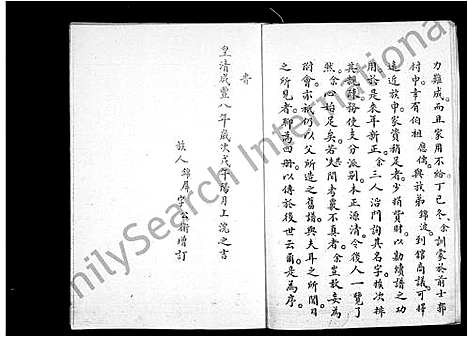 力難成。而且家用不給。丁巳冬、余訓蒙於前士郭
村中。幸有伯祖 應儒與族弟錦波。到館商議。可將
遠近族中家資稍足者。少捐資財。以勷續譜之功
用。於是來年新正。余三人沿門詢其名字。挨次排
其親疎。務使支分派別。本正源清。令後人一覽了
然。余心始足矣。若夫閒考核不真者。余豈敢妄為
附會。亦祇仍以父所造之舊譜。與夫耳之所聞。目
之所見者。鄣為四冊。以傳於後世云爾。是為序。
時
皇清咸豐八年歲次戊午陽月上浣之吉
族人 錦屏字公衛增訂
FamilySearch International